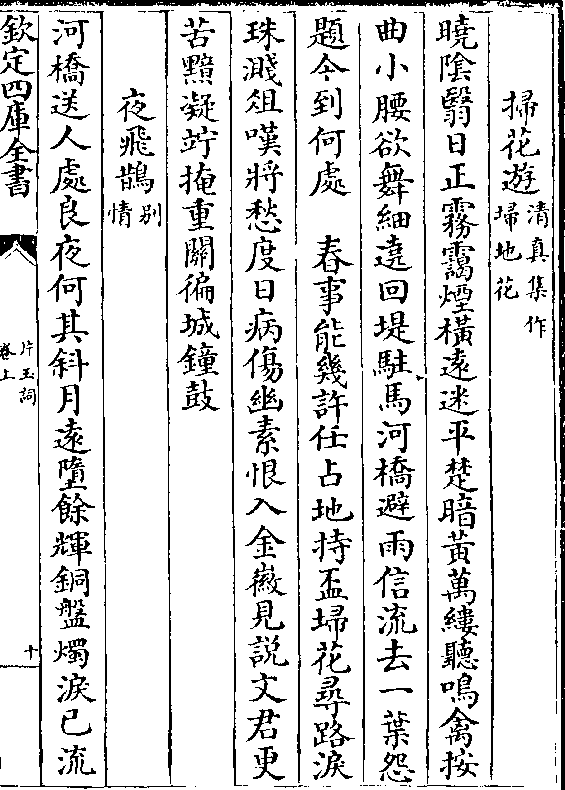 掃花遊清真集作掃地花
曉陰翳日正霧靄煙橫遠迷平楚暗黃萬縷聽鳴禽按
曲小腰欲舞細遶回堤駐馬河橋避雨信流去一葉怨
題今到何處　春事能幾許任占地持盃掃花尋路淚
珠濺俎嘆將愁度日病傷幽素恨入金徽見説文君更
苦黯凝竚掩重關徧城鐘鼓
夜飛鵲别情
河橋送人處良夜何其斜月遠墮餘輝銅盤燭淚已流
欽定四庫全書
片玉詞
卷上
十